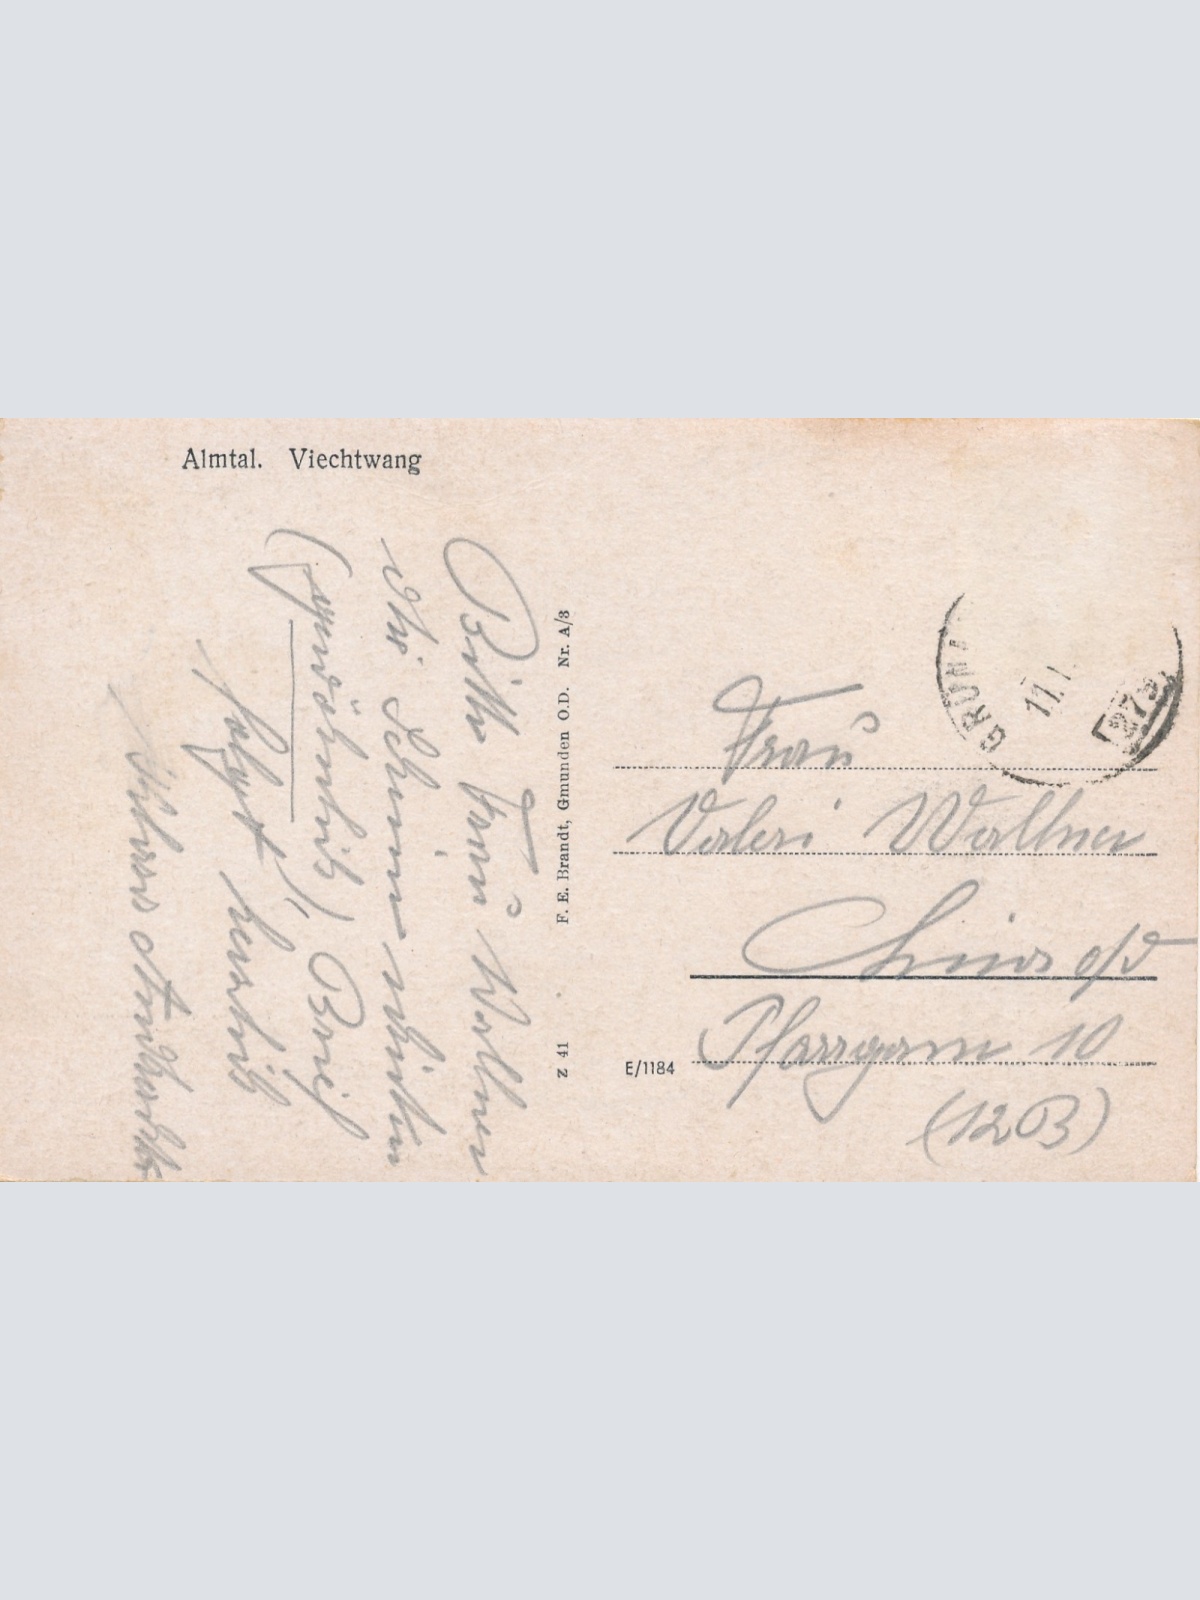 Almtal. Viechtwang
Bitte Frau Wallner
die Schirme schicken
(gewöhnlich) Brief
folgt! herzlich
F. E. Brandt, Gmunden O.D. Nr. A/3
z 41
E/1184
GRÜNA
11.
Frau
Valeri Wallner
Linz a/D
Pfarrgasse 10
(12B)